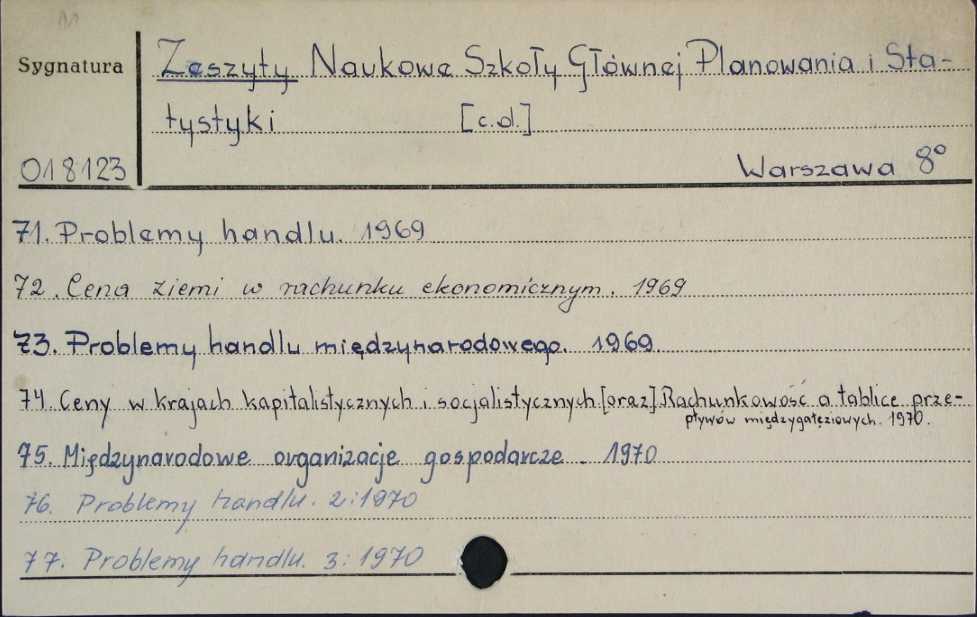 Sygnatura
Zeszyty Naukowe Szkoły Głównej Planowania i Sta-
tystyki [c.d.]
018123
Warszawa 8°
71. Problemy handlu. 1969
72. Cena ziemi w rachunku ekonomicznym. 1969
73. Problemy handlu międzynarodowego. 1969
74. Ceny w krajach kapitalistycznych i socjalistycznych [oraz] Rachunkowość a tablice prze-
pływów międzygałęziowych. 1970.
75. Międzynarodowe organizacje gospodarcze. 1970
76. Problemy handlu. 2: 1970
77. Problemy handlu. 3: 1970